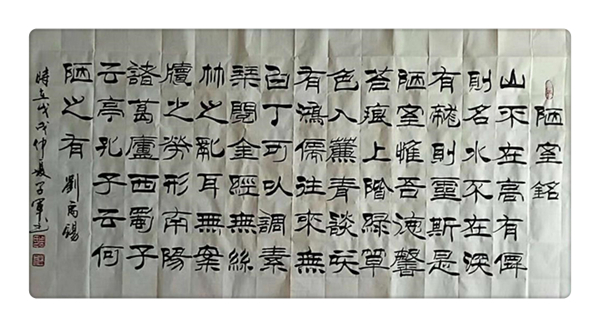 陋室銘
山不在高有僊
則名水不在深
有龍則靈斯是
陋室惟吾德馨
苔痕上階綠草
色入簾青談笑
有鴻儒往來無
白丁可以調素
琴閱金經無絲
竹之亂耳無案
牘之勞形南陽
諸葛廬西蜀子
云亭孔子云何
陋之有 劉禹錫
時在戊戌仲夏子軍